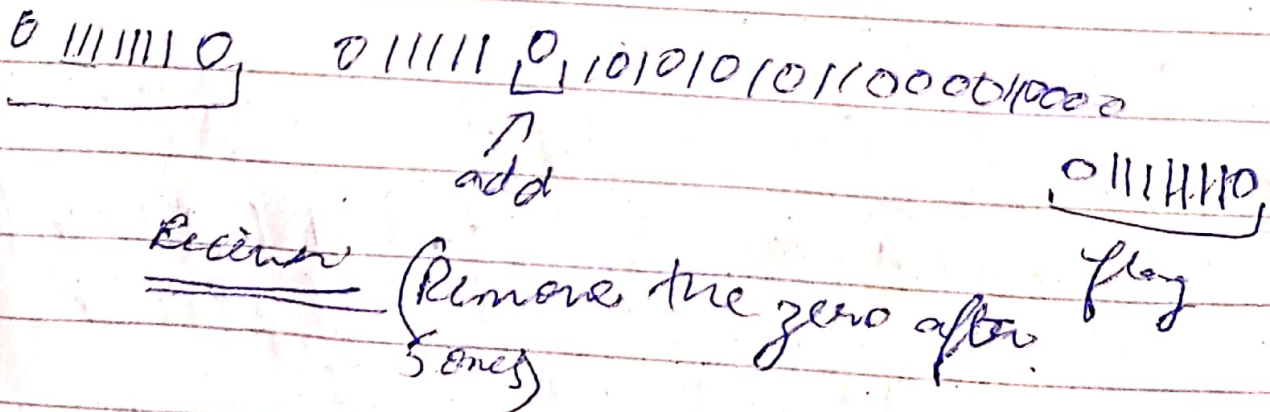 0 1111110 011111 0 1010101011000010000
add
01111110
flag
Receiver (Remove the zero after
5 ones)